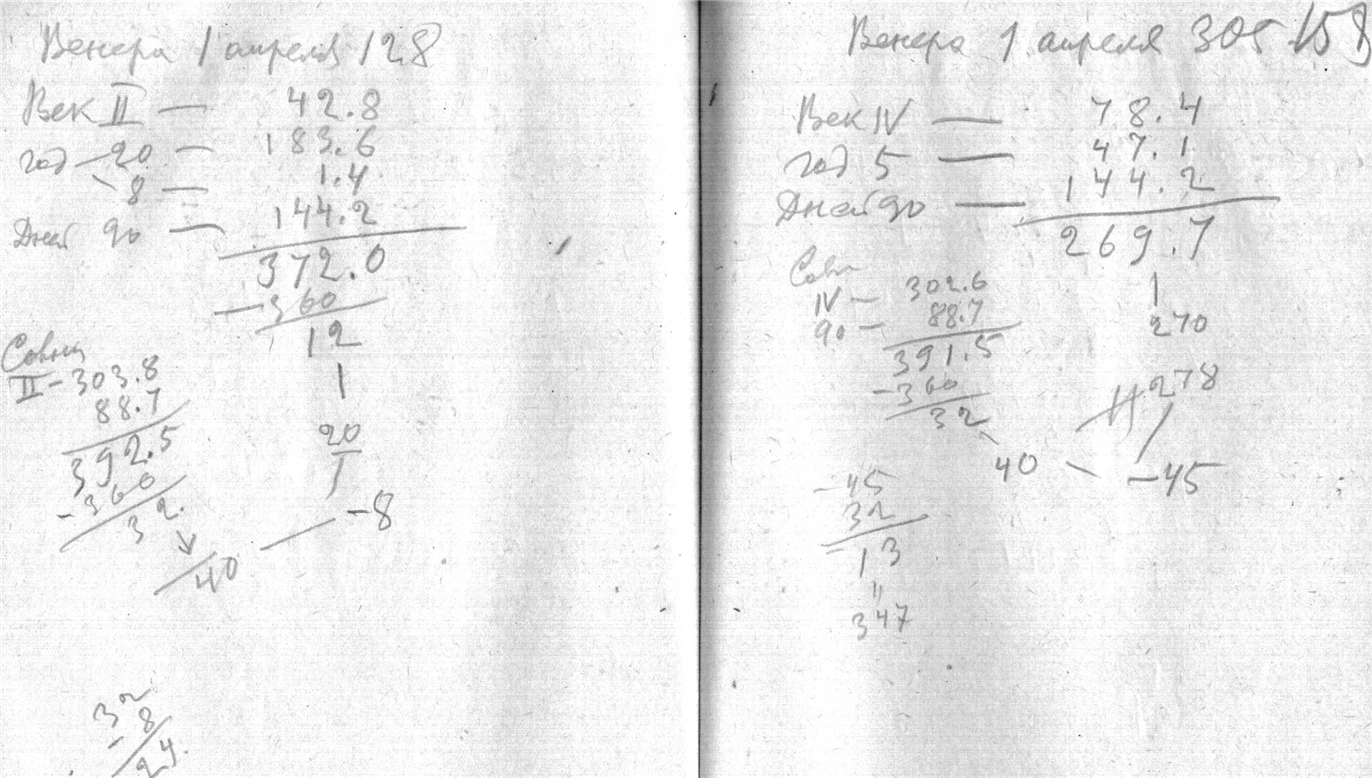 Венера 1 апреля 128
Век II — 42.8
год — 20 — 183.6
— 8 — 1.4
Дней 90 — 144.2
372.0
— 360
12
1
20
— 8
II — 303.8
88.7
392.5
- 360
32.
40
32
- 8
24.
Венера 1 апреля 305 158
Век IV — 78.4
год 5 — 47.1
Дней 90 — 144.2
269.7
1
270
IV — 302.6
90 — 88.7
391.5
- 360
32
278
40 — - 45
- 45
32
- 13
"
347